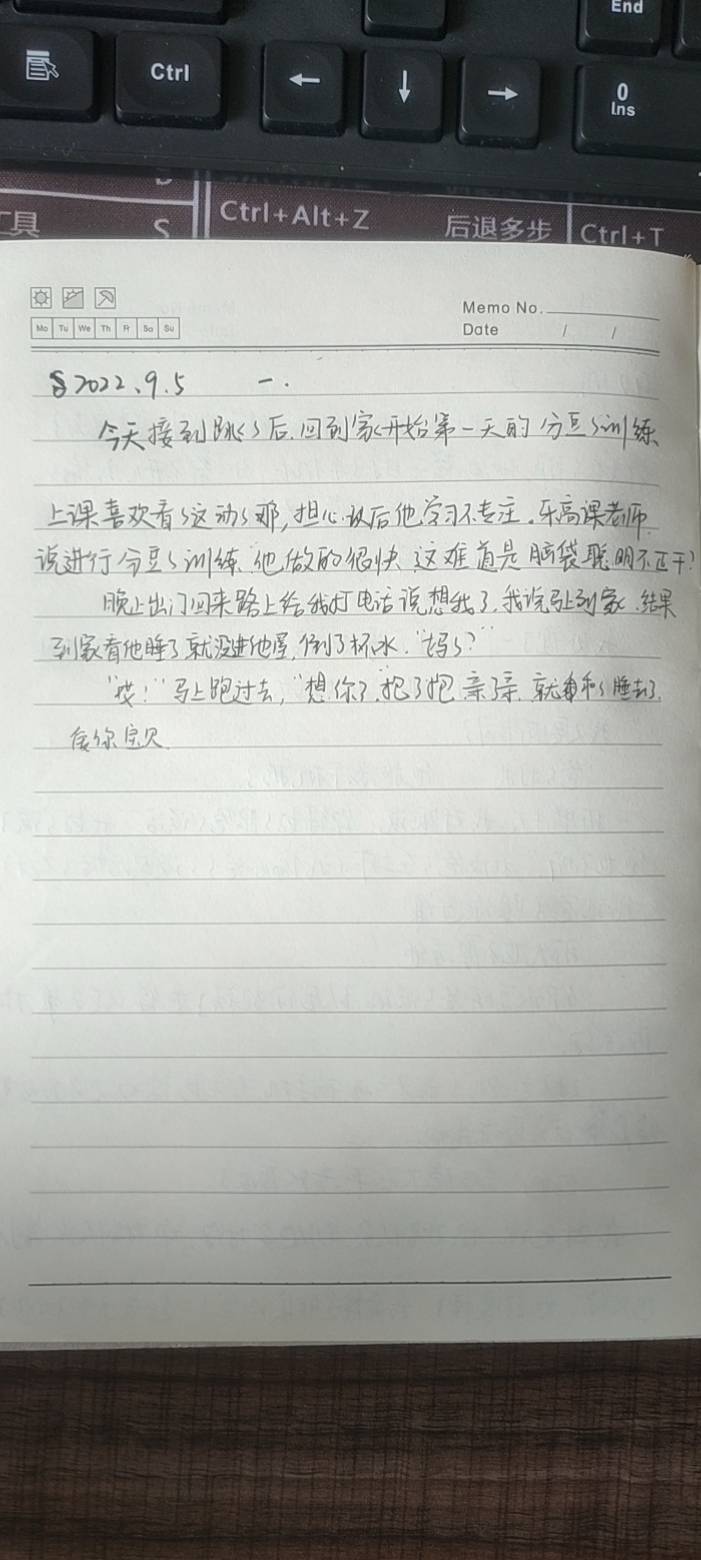 End
Ctrl
←
↓
→
0
Ins
工具
S
Ctrl+Alt+Z
后退多步
Ctrl+T
Memo No.
Mo Tu We Th Fr Sa Su
Date / /
2022.9.5 一.
今天接到跳跳后.回到家开始第一天的分豆豆训练
上课喜欢看看这动动那,担心以后他学习不专注.乐高课老师
说进行分豆豆训练、他做的很快、这难道是脑袋聪明不正干?
晚上出门回来路上给我打电话说想我了.我说马上到家.结果
到家看他睡了就没进他屋,倒了杯水."妈妈?"
"哎!"马上跑过去,"想你了.抱了抱 亲了亲.就乖乖睡去了.
你宝贝.